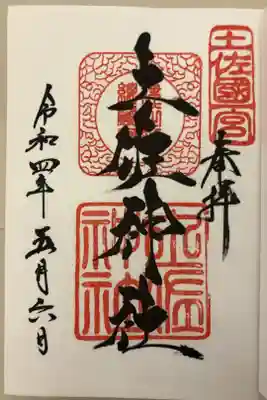 土佐國一宮
奉拝
土佐神社
土佐神社
令和四年 五月六日